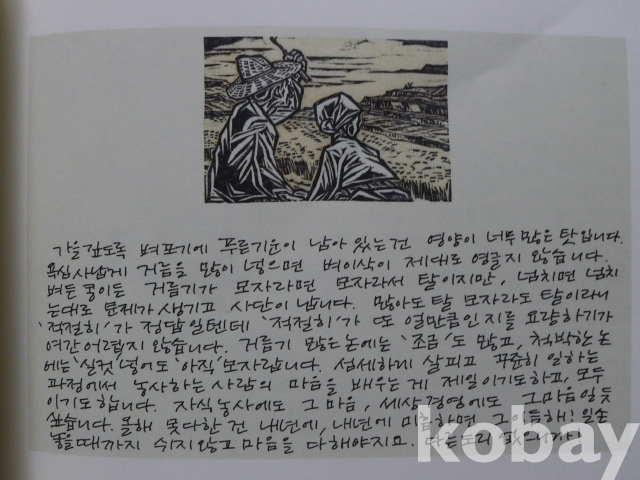 가을 깊도록 벼포기에 푸른기운이 남아 있는건 영양이 너무 많은 탓입니다.
욕심사납게 거름을 많이 넣으면 벼이삭이 제대로 영글지 않습니다.
벼든 콩이든 거름기가 모자라면 모자라서 탈이지만, 넘치면 넘치
는대로 문제가 생기고 사단이 납니다. 많아도 탈 모자라도 탈이라니
'적절히'가 정답일텐데 '적절히'가 또 얼만큼인지를 요량하기가
여간 어렵지 않습니다. 거름기 많은 논에는 '조금'도 많고, 척박한 논
에는 '실컷' 넣어도 '아직' 모자랍니다. 섬세하게 살피고 꾸준히 일하는
과정에서 농사하는 사람의 마음을 배우는게 제일이기도하고, 모두
이기도 합니다. 자식농사에도 그 마음, 세상경영에도 그마음일듯
싶습니다. 올해 못다한건 내년에, 내년에 미흡하면 그 이듬해! 일손
놓을때까지 쉬지않고 마음을 다해야지요.
kobay